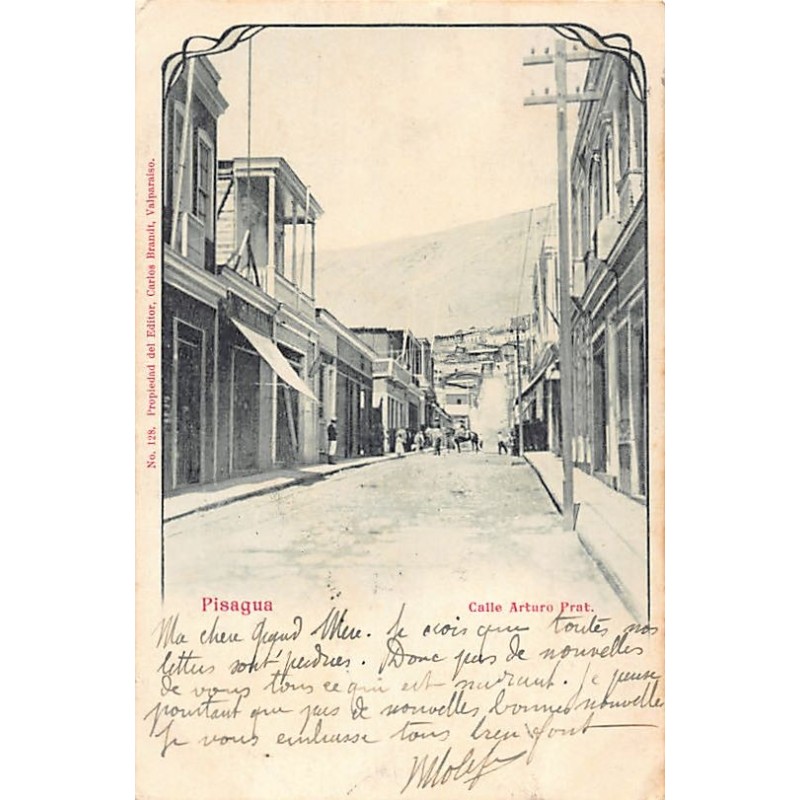 No. 128. Propiedad del Editor, Carlos Brandt, Valparaiso.
Pisagua
Calle Arturo Prat.
Ma chere Grand Mere. Je crois que toutes nos
lettres sont perdues. Donc pas de nouvelles
de vous tous ce qui est navrant. Je pense
pourtant que pas de nouvelles bonnes nouvelles
Je vous embrasse tous bien fort